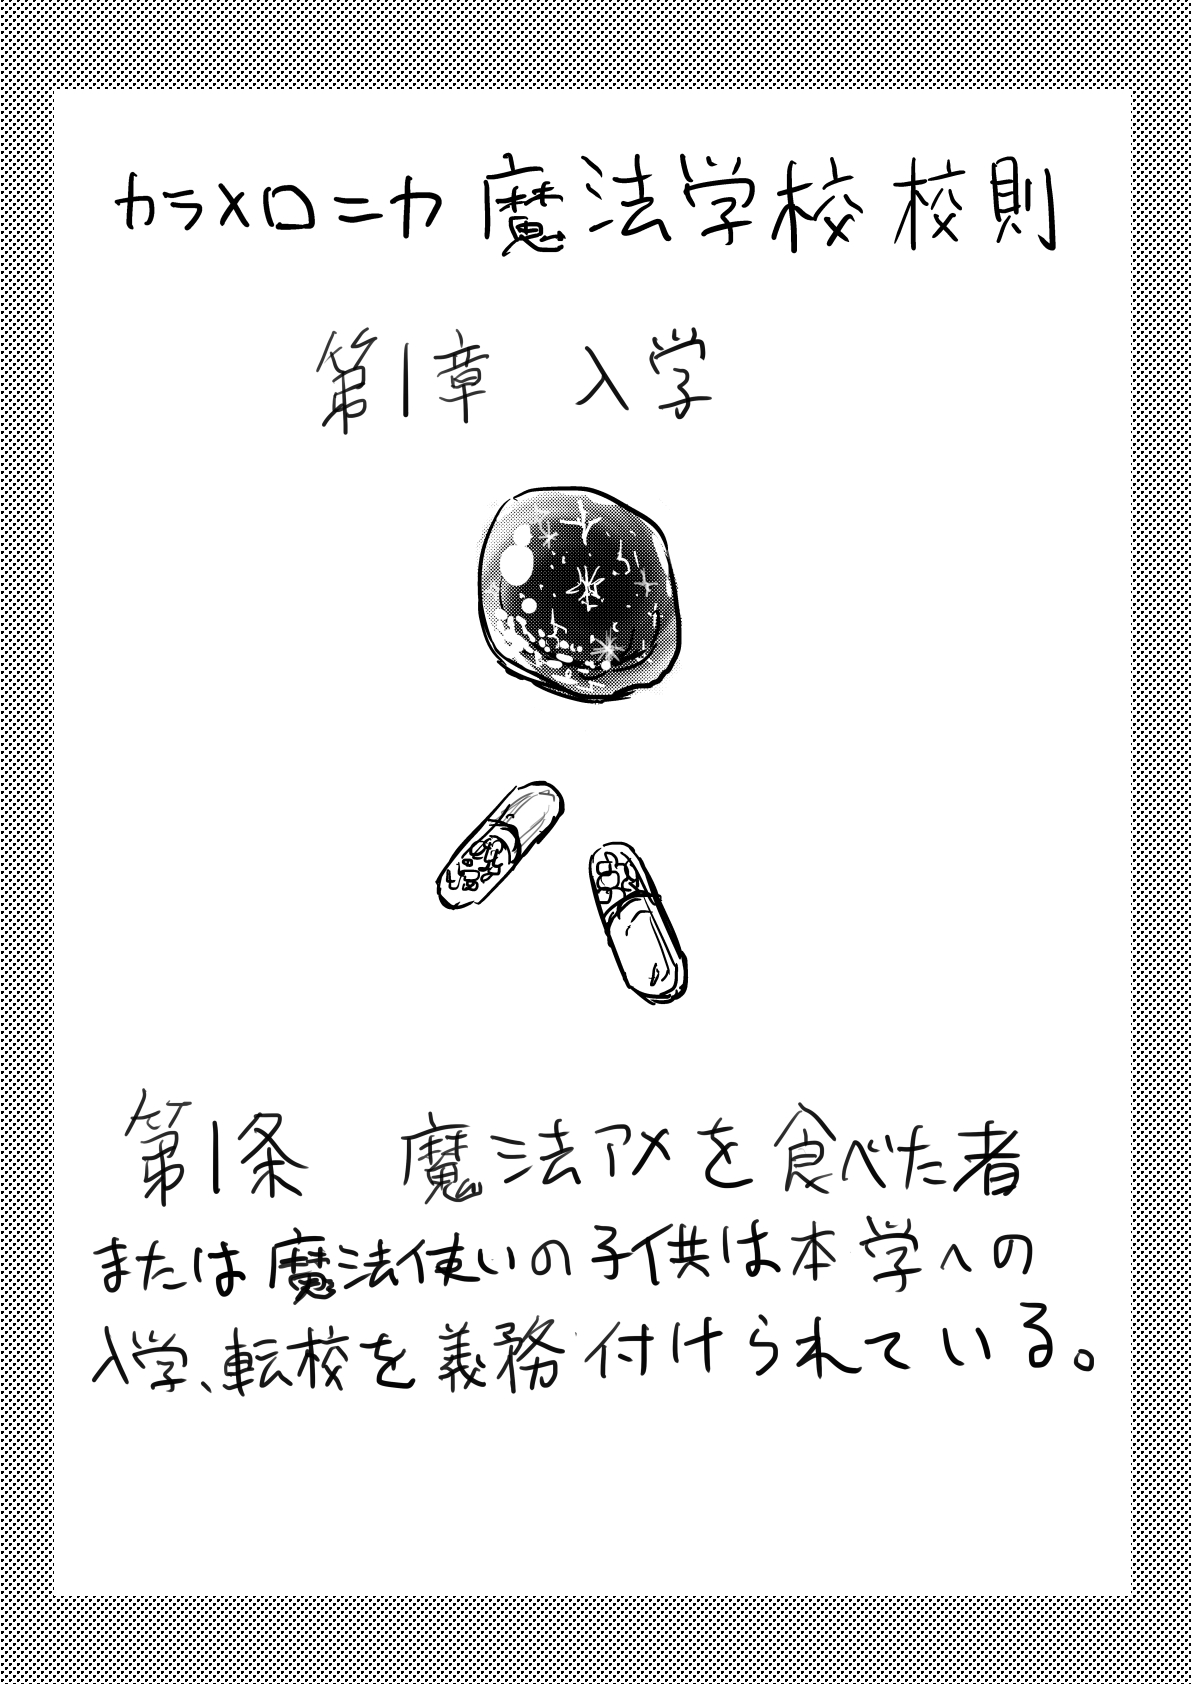 カラメロニカ 魔法学校 校則
第1章 入学
第1条 魔法アメを食べた者
または魔法使いの子供は本学への
入学、転校を義務付けられている。